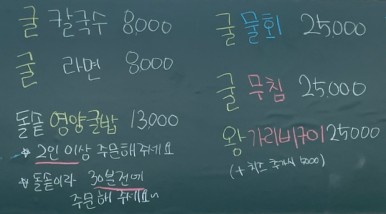 굴 칼국수 8000
굴 라면 8000
돌솥 영양굴밥 13,000
2인 이상 주문해주세요
돌솥이라 30분전에
주문해 주세요~
굴 물회 25000
굴 무침 25,000
왕가리비구이 25000
(+ 치즈 추가시 5000)